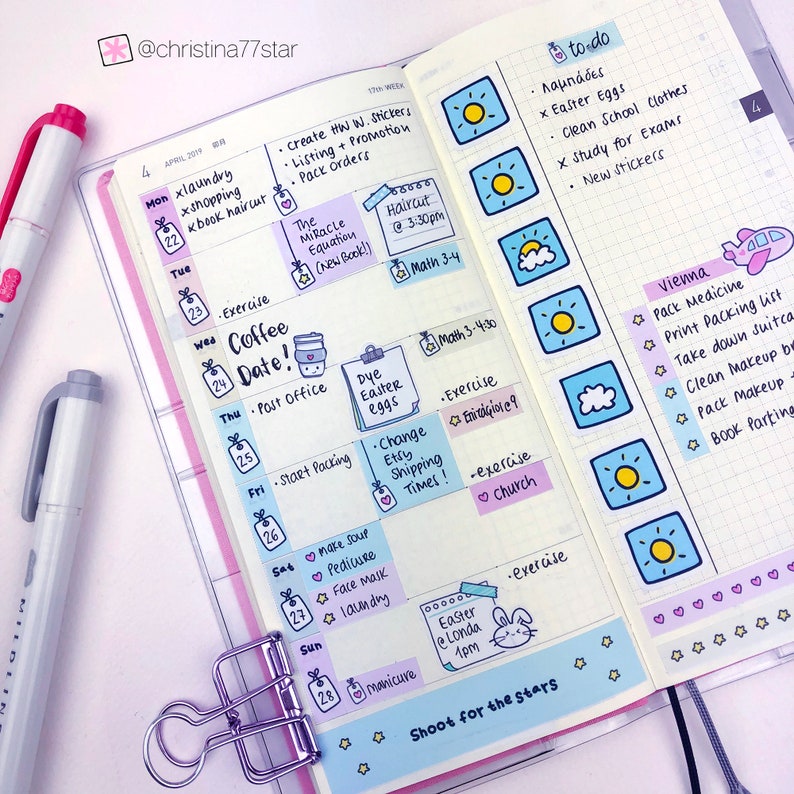 @christina77star
17th WEEK
4 APRIL 2019 卯月
Mon
22
x laundry
x shopping
x book haircut
• Create HW W. Stickers
• Listing + Promotion
• Pack Orders
The
Miracle
Equation
(New Book!)
Haircut
@ 3:30pm
Tue
23
• Exercise
Math 3-4
Wed
24
Coffee
Date!
Math 3-4:30
Thu
25
• Post Office
Dye
Easter
eggs
• Exercise
Fri
26
• Start Packing
• Change
Etsy
Shipping
Times!
• exercise
church
Sat
27
Make soup
Pedicure
Face Mask
laundry
• exercise
Sun
28
Manicure
Easter
@ Londa
1pm
Shoot for the stars
to-do
• Λαμπάδες
x Easter Eggs
• Clean School Clothes
x Study for Exams
• New Stickers
4
Vienna
Pack Medicine
Print Packing List
Take down
Clean Makeup
Pack Makeup
Book Parking
MILDLINER